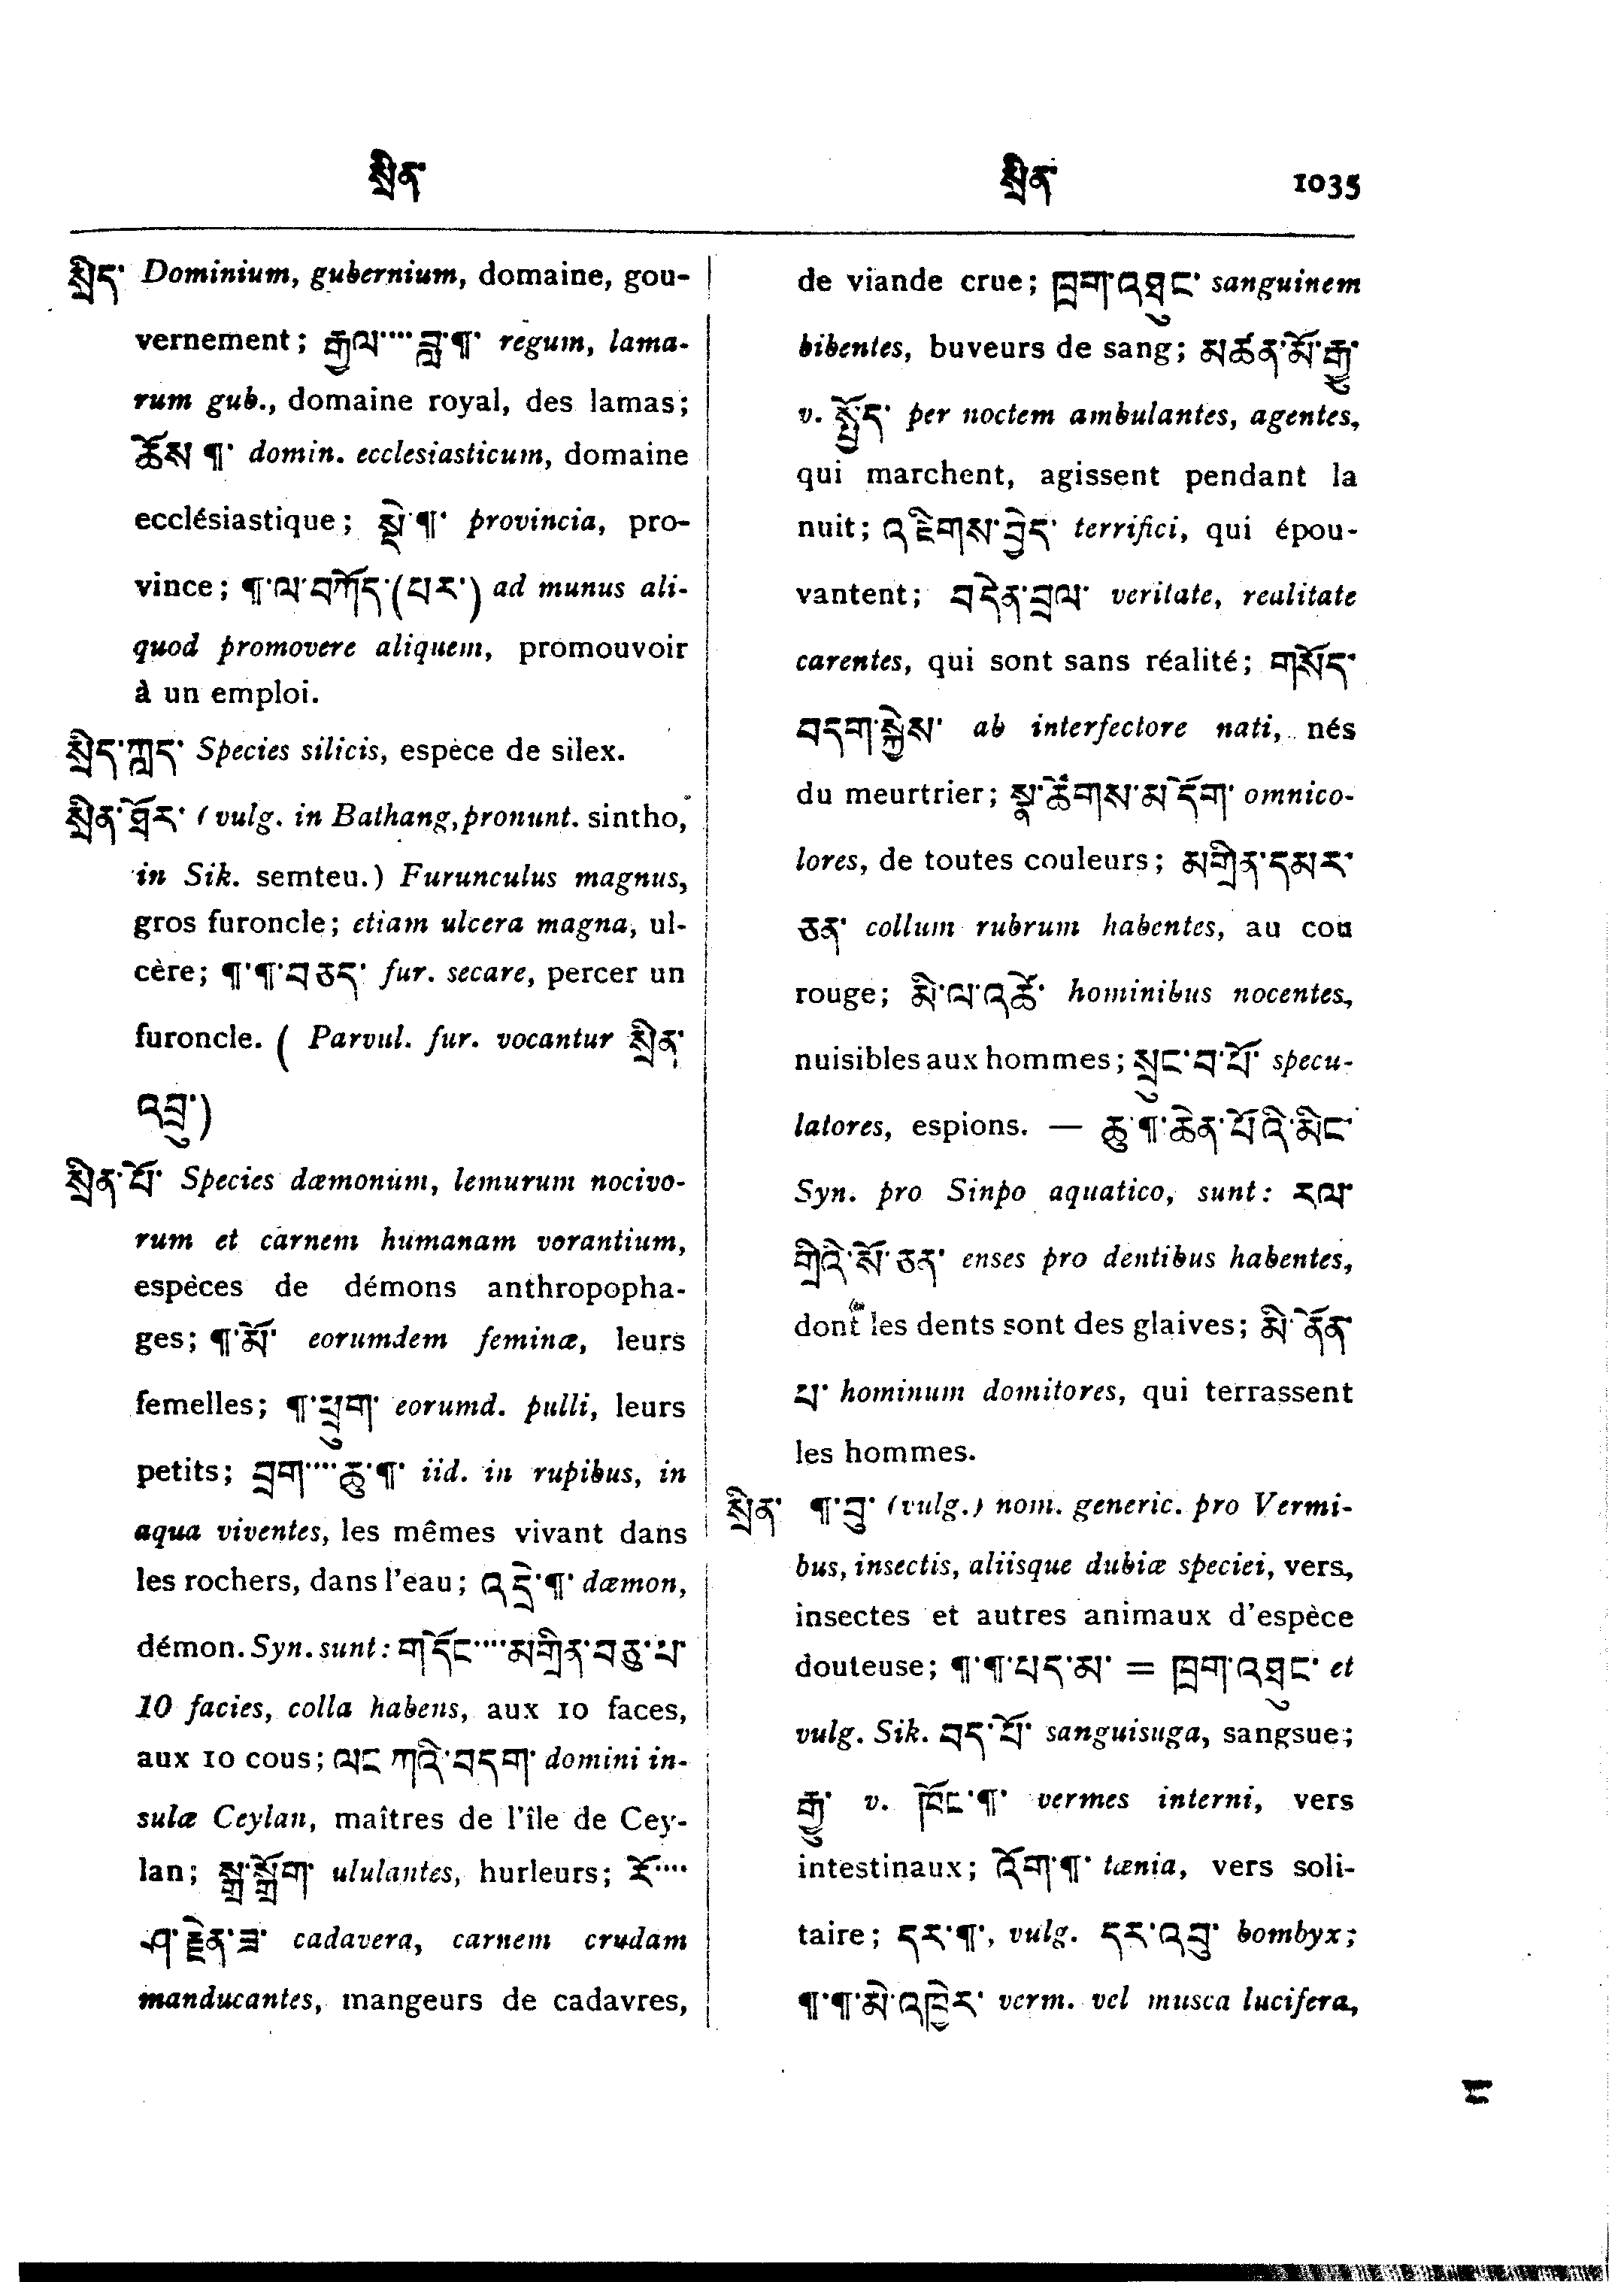 སྲིན་ སྲིན་ 1035
སྲིད་ Dominium, gubernium, domaine, gou-
vernement; རྒྱལ་‧‧‧ བླ་¶་ regum, lama-
rum gub., domaine royal, des lamas;
ཆོས ¶་ domin. ecclesiasticum, domaine
ecclésiastique; སྡེ་¶་ provincia, pro-
vince; ¶་ལ་བཀོད་(པར་) ad munus ali-
quod promovere aliquem, promouvoir
à un emploi.
སྲིད་ཀླད་ Species silicis, espèce de silex.
སྲིན་ཐོར་ (vulg. in Bathang, pronunt. sintho,
in Sik. semteu.) Furunculus magnus,
gros furoncle; etiam ulcera magna, ul-
cère; ¶་¶་བཅད་ fur. secare, percer un
furoncle. ( Parvul. fur. vocantur སྲིན་
འབྲུ་)
སྲིན་པོ་ Species dæmonum, lemurum nocivo-
rum et carnem humanam vorantium,
espèces de démons anthropopha-
ges; ¶་མོ་ eorumdem feminæ, leurs
femelles; ¶་ཕྲུག་ eorumd. pulli, leurs
petits; བྲག་‧‧‧ཆུ་¶་ iid. in rupibus, in
aqua viventes, les mêmes vivant dans
les rochers, dans l'eau; འདྲེ་¶་ dæmon,
démon. Syn. sunt: གདོང་‧‧‧མགྲིན་བཅུ་པ་
10 facies, colla habens, aux 10 faces,
aux 10 cous; ལང ཀའི་བདག་ domini in-
sulæ Ceylan, maîtres de l'île de Cey-
lan; སྒྲ་སྒྲོག་ ululantes, hurleurs; རོ་‧‧‧
ཤ་རྗེན་ཟ་ cadavera, carnem crudam
manducantes, mangeurs de cadavres,
de viande crue; ཁྲག་འཐུང་ sanguinem
bibentes, buveurs de sang; མཚན་མོ་རྒྱུ་
v. སྤྱོད་ per noctem ambulantes, agentes,
qui marchent, agissent pendant la
nuit; འཇིགས་བྱེད་ terrifici, qui épou-
vantent; བདེན་བྲལ་ veritate, realitate
carentes, qui sont sans réalité; གསོད་
བདག་སྐྱེས་ ab interfectore nati, nés
du meurtrier; སྣ་ཚོགས་མདོག་ omnico-
lores, de toutes couleurs; མགྲིན་དམར་
ཅན་ collum rubrum habentes, au cou
rouge; མི་ལ་འཚེ་ hominibus nocentes,
nuisibles aux hommes; སྲུང་བ་པོ་ specu-
latores, espions. — ཆུ་¶་ཆེན་པོའི་མིང་
Syn. pro Sinpo aquatico, sunt: རལ་
གྲིའི་སོ་ཅན་ enses pro dentibus habentes,
dont les dents sont des glaives; མི་ནོན་
པ་ hominum domitores, qui terrassent
les hommes.
སྲིན་ ¶་བུ་ (vulg.) nom. generic. pro Vermi-
bus, insectis, aliisque dubiæ speciei, vers,
insectes et autres animaux d'espèce
douteuse; ¶་¶་པད་མ་ = ཁྲག་འཐུང་ et
vulg. Sik. བད་པོ་ sanguisuga, sangsue;
རྒྱུ་ v. ཁོང་¶་ vermes interni, vers
intestinaux; འོག་¶་ tænia, vers soli-
taire; དར་¶་, vulg. དར་འབུ་ bombyx;
¶་¶་མེ་འཁྱེར་ verm. vel musca lucifera,